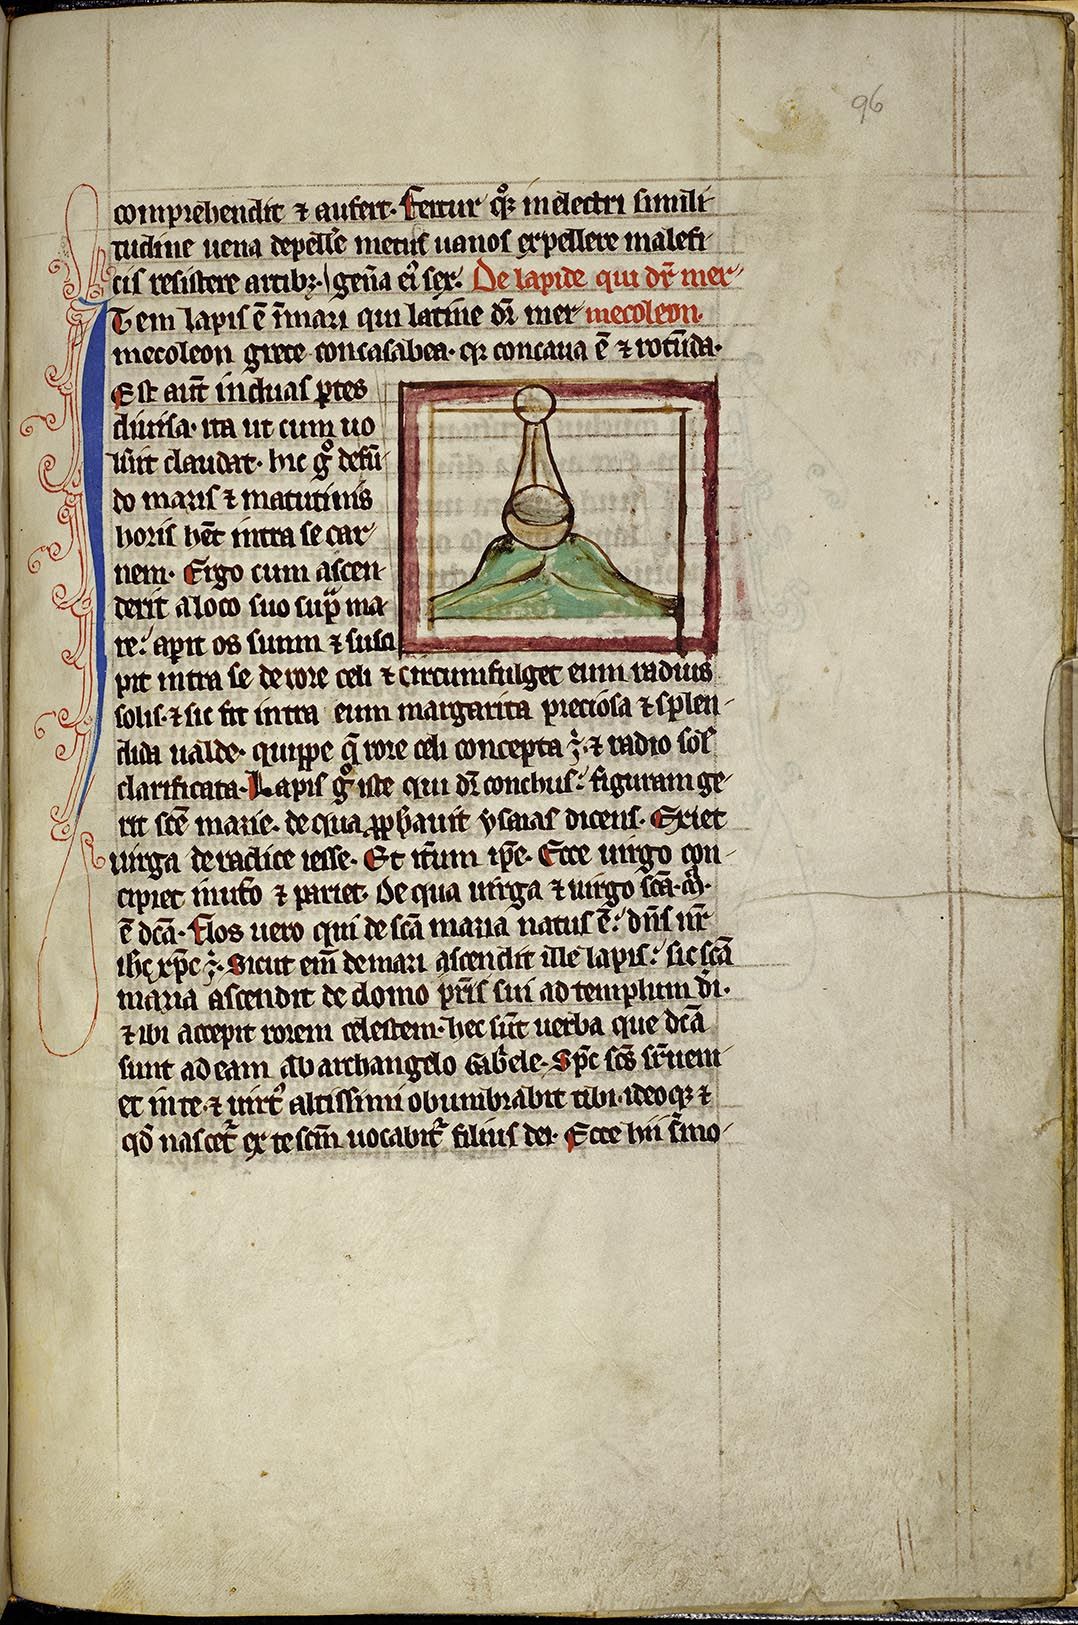 96
comprehendit ⁊ aufert. Fertur q̊ꝫ in electri simili-
tudine uena depelle᷒ metus uanos expellere malefi-
cis resistere artibꝫ. gen̄a ei᷒ sex. De lapide qui dr̄ mer-
Tem lapis ē ī mari qui latine dr̄ mer mecoleon.
mecoleon grece concasabea. qꝫ concaua ē ⁊ rotūda.
Est aut̄ in duas ꝑtes
diuisa. ita ut cum uo
lu̾it claudat. hic g̊ de fū
do maris ⁊ matutinis
horis hēt intra se car-
nem. Ergo cum ascen-
derit a loco suo supͣ ma-
re: aꝑit os suum ⁊ susci
pit intra se de rore celi ⁊ circumfulget eum radius
solis. ⁊ sic fit intra eum margarita preciosa ⁊ splen-
dida ualde. quippe q̄ rore celi concepta ē. ⁊ radio sol᷒
clarificata. Lapis g̊ iste qui dr̄ conchus: figuram ge-
rit scē marie. de qua ꝓph̄auit ysaias dicens. Exiet
uirga de radice iesse. Et it̄um ip̄e. Ecce uirgo con-
cipiet in ut̾o ⁊ pariet. De qua uirga ⁊ uirgo scā. m̄.
ē dcā. Flos uero qui de scā maria natus ē: dn̄s nr̄
ih̄c xp̄c ē. Sicut em̄ de mari ascendit ille lapis: sic scā
maria ascendit de domo pr̄is sui ad templum dī.
⁊ ibi accepit rorem celestem. hec sūt uerba que dcā
sunt ad eam ab archangelo Gab̾ele. Sp̄c scs̄ suꝑueni
et in te. ⁊ uirt᷒ altissimi obumbrabit tibi. ideoqꝫ ⁊
qd̄ nascet᷑ ex te scm̄ uocabit᷑ filius dei. Ecce hii s̾mo-